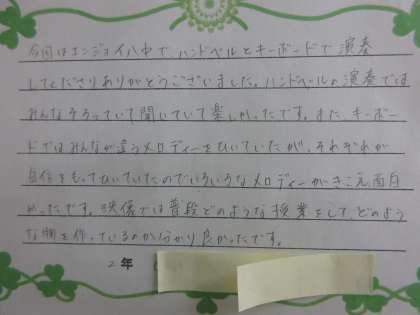 今回はエンジョイ八中でハンドベルとキーボードで演奏
してくださりありがとうございました。ハンドベルの演奏では
みんなそろっていて聞いていて楽しかったです。また、キーボー
ドではみんなが違うメロディーをひいていたが、それぞれが
自信をもってひいていたのでいろいろなメロディーがきこえ面白
かったです。映像では普段どのような授業をして、どのよう
な物を作っているのか分かり良かったです。
2年